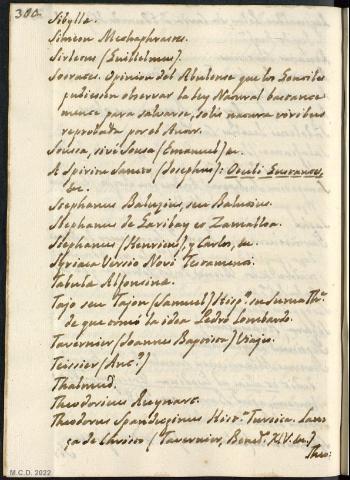 300.
Sibylla.
Simeon Methaphrastes.
Sirletus (Guillielmus).
Socrates. Opinion del Abulense que los Gentiles
pudiesen observar la Ley Natural bastante
mente para salvarse, solis natura viribus
reprobada por el Autor.
Sousa, sive Sosa (Emanuel) &c.
A Spiritu Sancto (Josephus): Occeli Lucanus,
&c.
Stephanus Baluzius, seu Balusius.
Stephanus de Garibay et Zamalloa.
Stephanus (Henricus), y Carlos, &c.
Syriaca Versio Novi Testamenti.
Tabula Alfonsina.
Tajo seu Tajon (Samuel) Hisp.º su Suma Th.
de que tomó la idea Pedro Lombardo.
Tavernier (Joannes Baptista) Viajes.
Teissier (Ant.º)
Thalmud.
Theodoricus Ruynart.
Theodorus Spanduginus Hist.ª Turcica. Lan-
za de Christo (Tavernier, Bened.º XIV. &c.)
Theo:
M.C.D. 2022